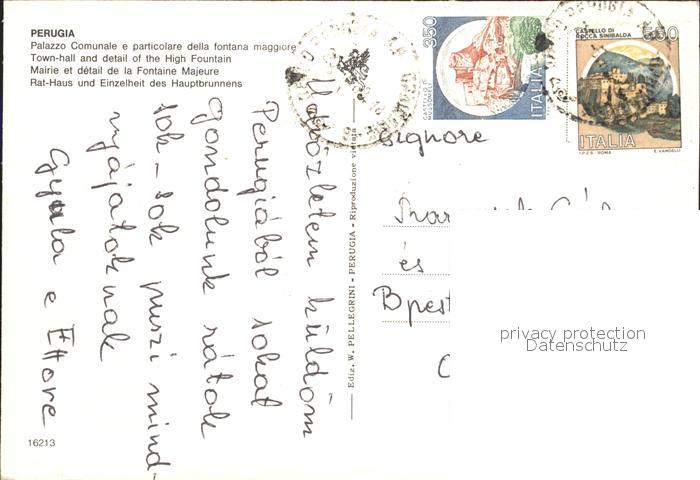 PERUGIA
Palazzo Comunale e particolare della fontana maggiore
Town-hall and detail of the High Fountain
Mairie et détail de la Fontaine Majeure
Rat-Haus und Einzelheit des Hauptbrunnens
Üdvözletem küldöm
Perugiából sokat
gondolunk rátok
sok-sok puszi mind-
nyájatoknak
Gyula e Ettore
16213
Ediz. W. PELLEGRINI - PERUGIA - Riproduzione vietata
350
CASTELLO DI
MUSSOMELI
ITALIA
CASTELLO DI
ROCCA SINIBALDA
550
ITALIA
I.P.Z.S. - ROMA
E. VANGELLI
Signore
és
Bpest
privacy protection
Datenschutz